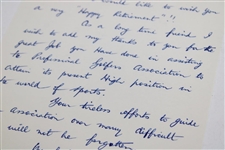 would like to wish you
a very "Happy Retirement"!!
As a long time friend I
wish to add my thanks to you for the
great job you have done in assisting
to Professional Golfers Association to
attain its present high position in
to world of sports.
Your tireless efforts to guide
association over many difficult
will not be forgotten